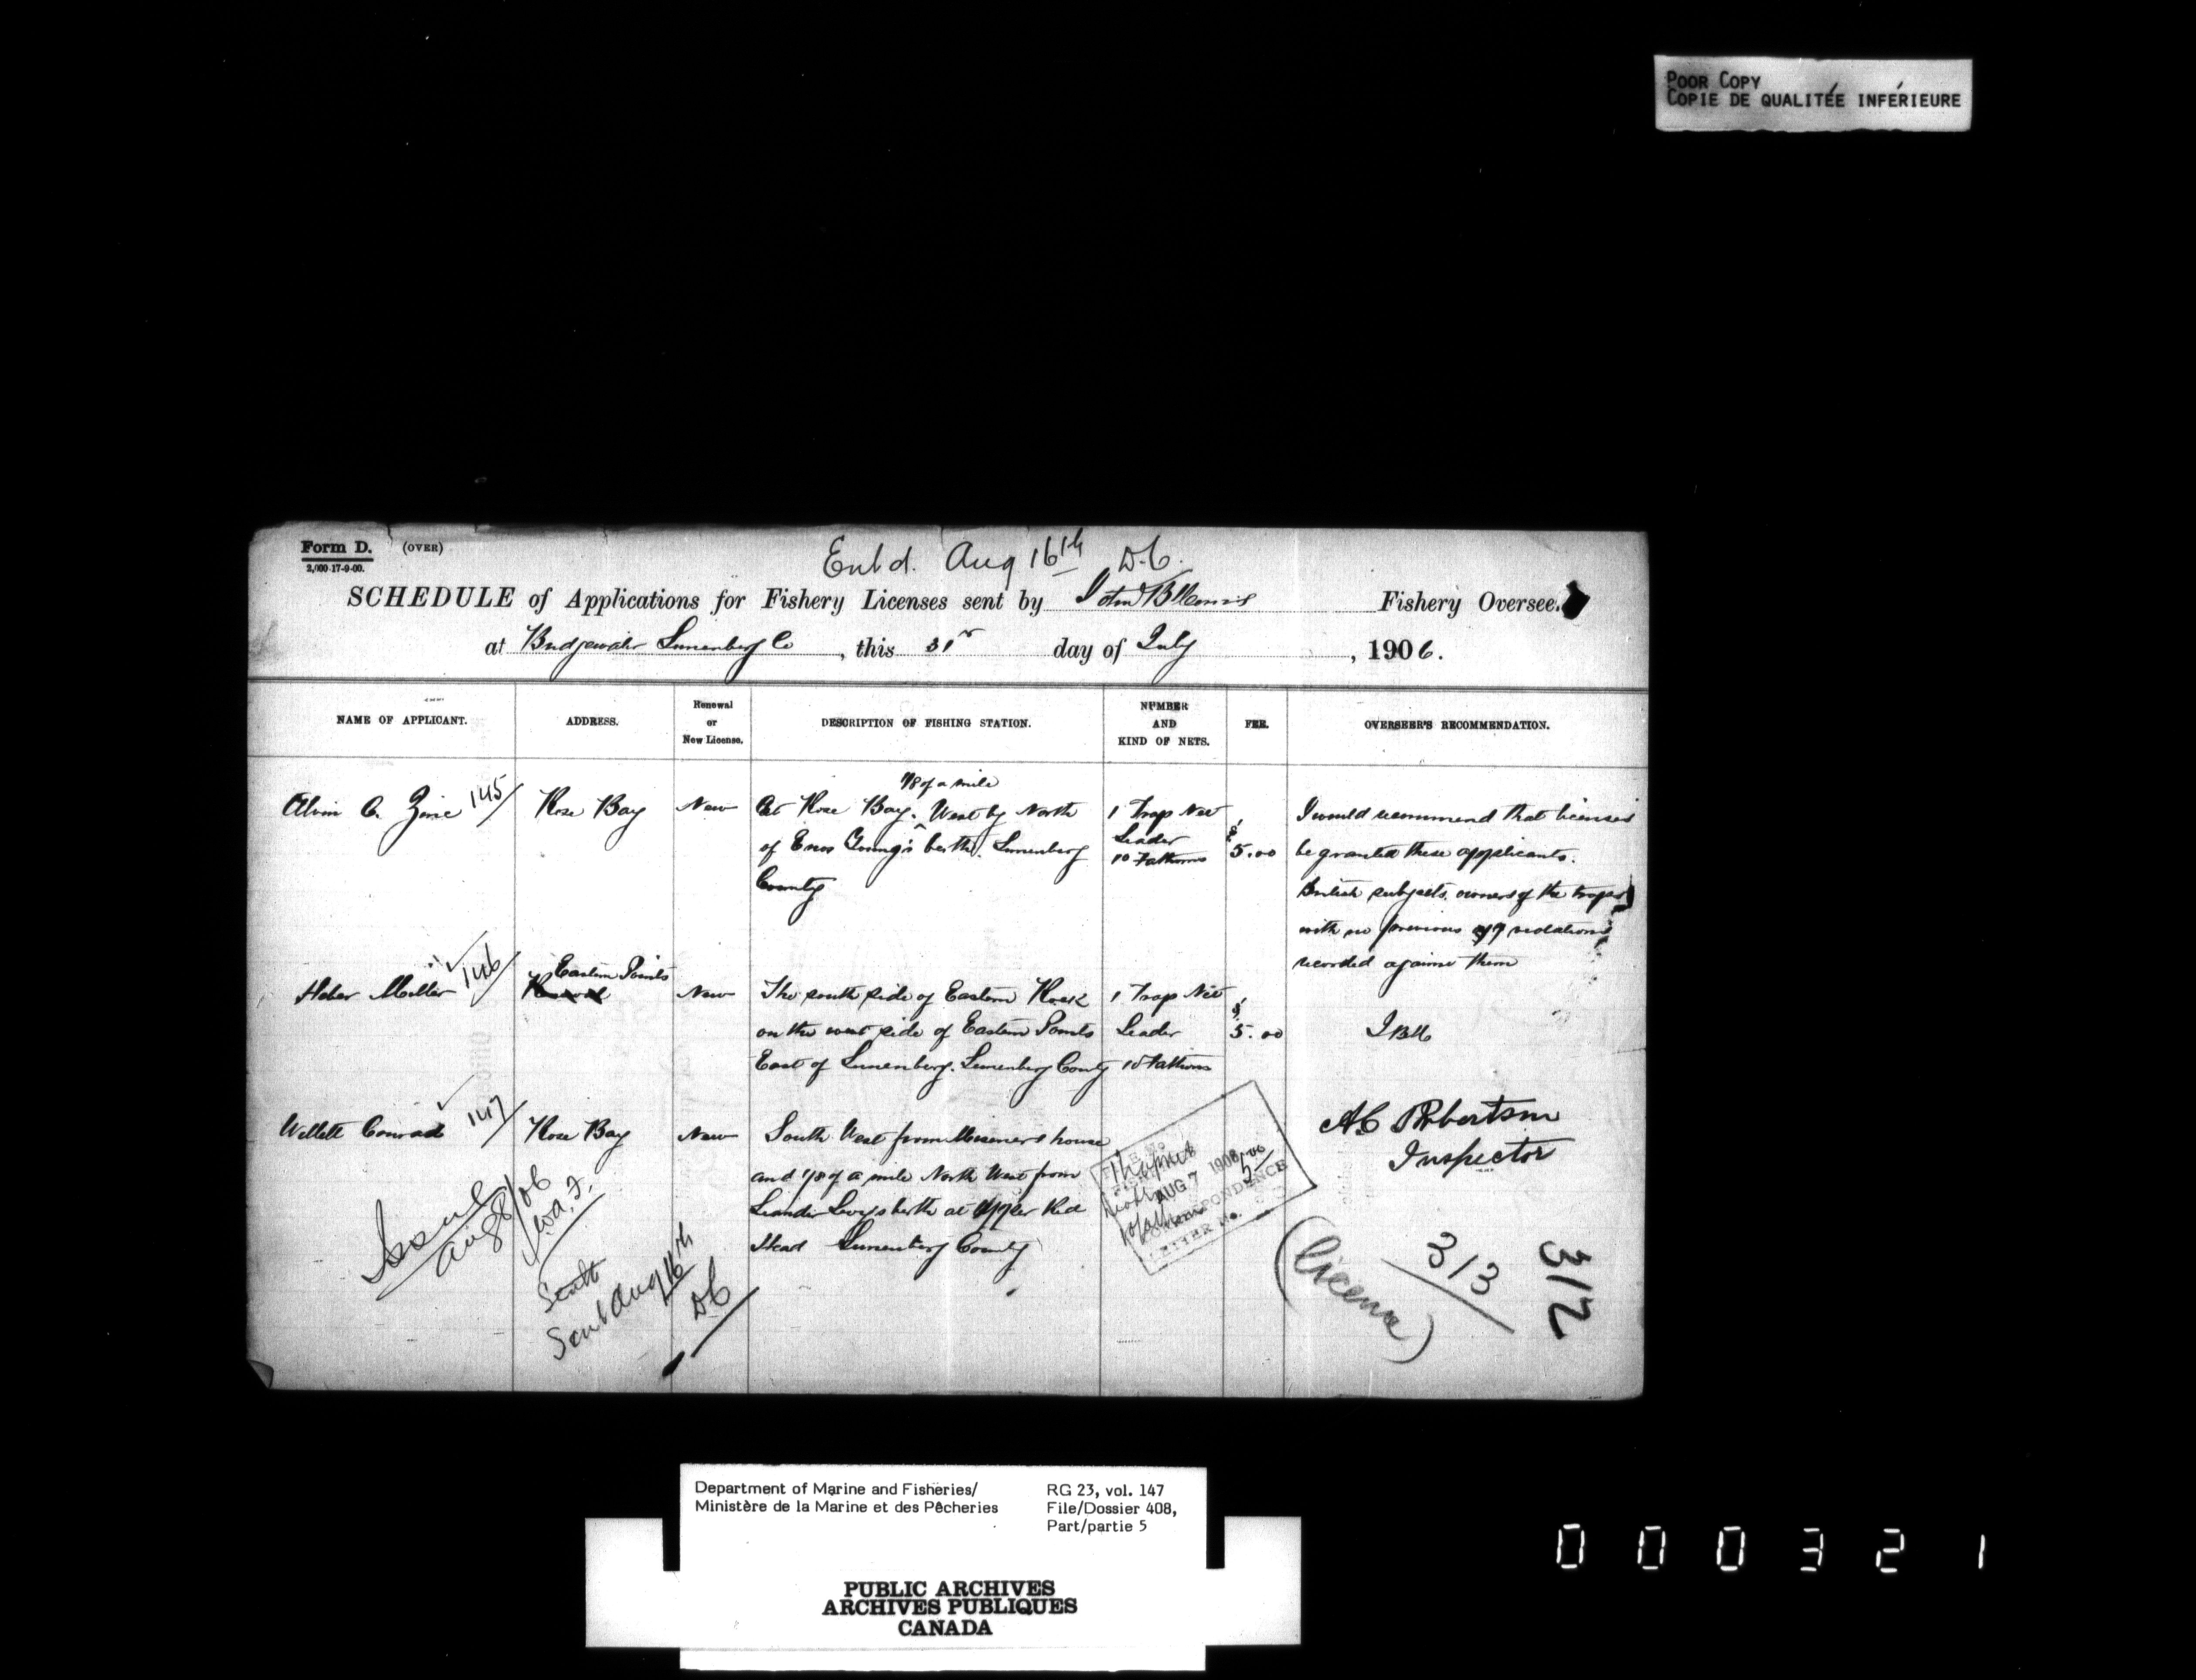 POOR COPY
COPIE DE QUALITÉE INFÉRIEURE
Form D. (OVER)
2,000-17-9-00.
Entd. Aug 16th D.C.
SCHEDULE of Applications for Fishery Licenses sent by Fishery Oversee
at Bridgewater Lunenburg Co, this 31st day of July, 1906.
NAME OF APPLICANT. ADDRESS. Renewal or New License. DESCRIPTION OF FISHING STATION. NUMBER AND KIND OF NETS. FEE. OVERSEER'S RECOMMENDATION.
Alvin C. 145 Rose Bay New At Rose Bay. 1/8 of a mile West by North 1 Trap Net I would recommend that licenses
of Enos Young's berth. Lunenburg Leader 10 Fathoms $5.00 be granted these applicants.
County British subjects, owners of the traps
with no previous violations
recorded against them
146 Eastern Points
Heber New The south side of Eastern Rock 1 Trap Net
on the west side of Eastern Points Leader $5.00
East of Lunenburg. Lunenburg County 10 Fathoms
Willett Conrad 147 Rose Bay New South West from house
and 1/8 of a mile North West from
Leander Levy's berth at Upper Red
Head Lunenburg County
A.C. Robertson
Inspector
AUG 7 1906
CORRESPONDENCE
LETTER No.
5.00
Issued
Aug 8/06
W.A.F.
Sent Aug 16th
DC
(license)
313
312
Department of Marine and Fisheries/
Ministère de la Marine et des Pêcheries
RG 23, vol. 147
File/Dossier 408,
Part/partie 5
PUBLIC ARCHIVES
ARCHIVES PUBLIQUES
CANADA
000321